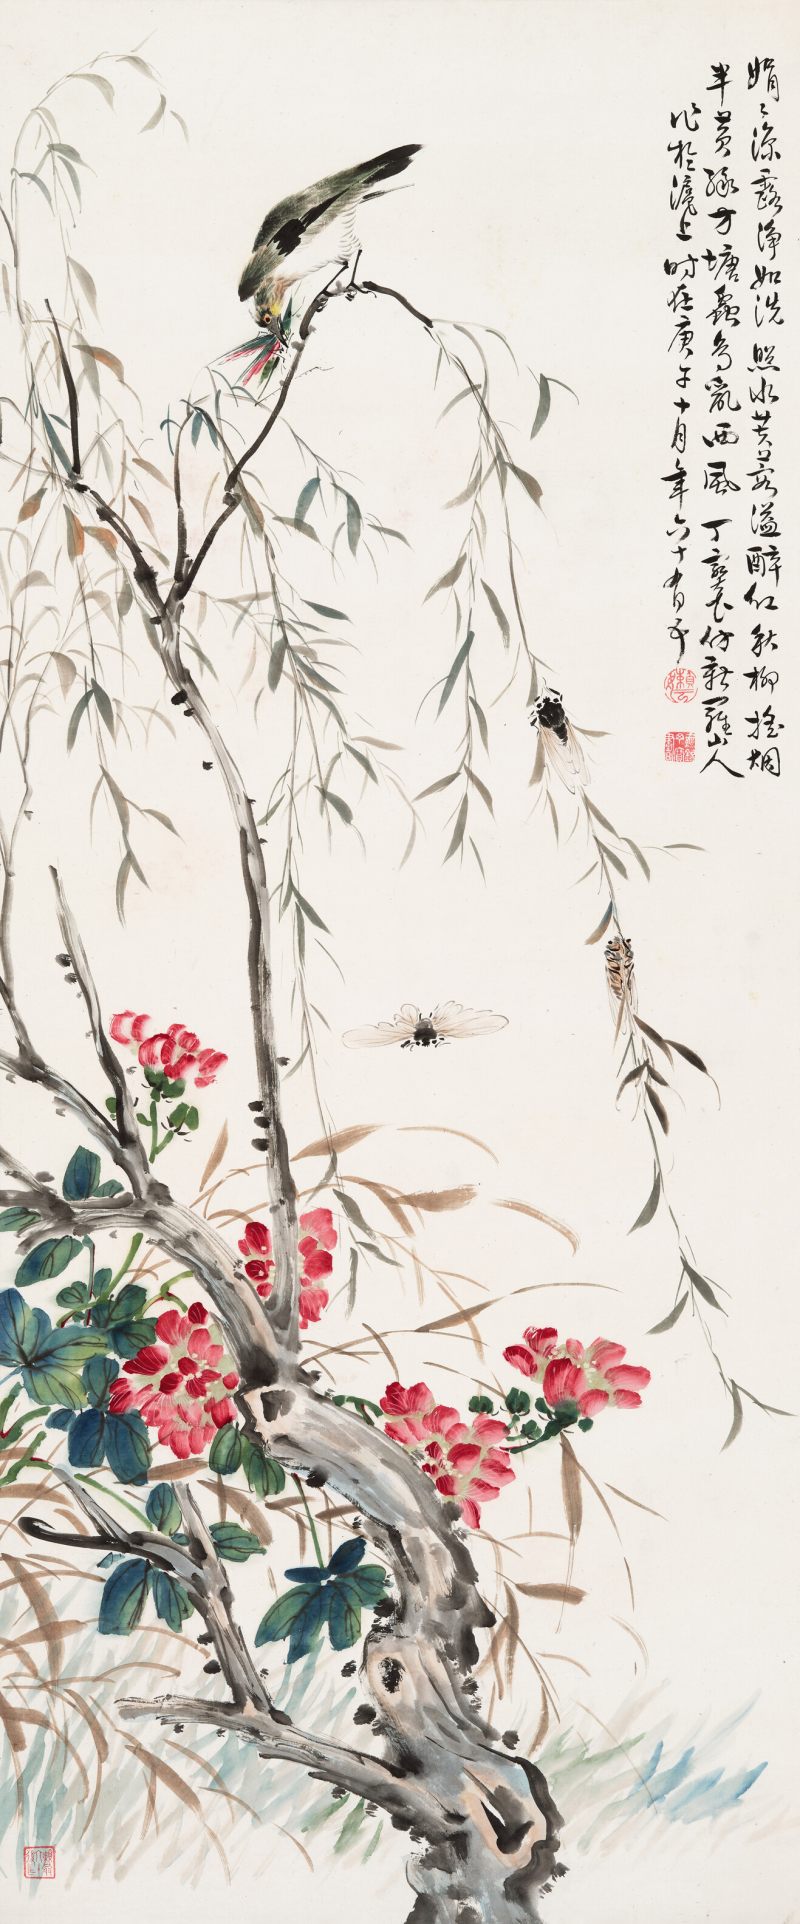 娟〻涼露淨如洗照水芙蓉溢醉紅秋柳搖烟
半黃綠方塘蟲鳥亂西風丁寶書仿新羅山人
作於滬上時在庚午十月年六十有五